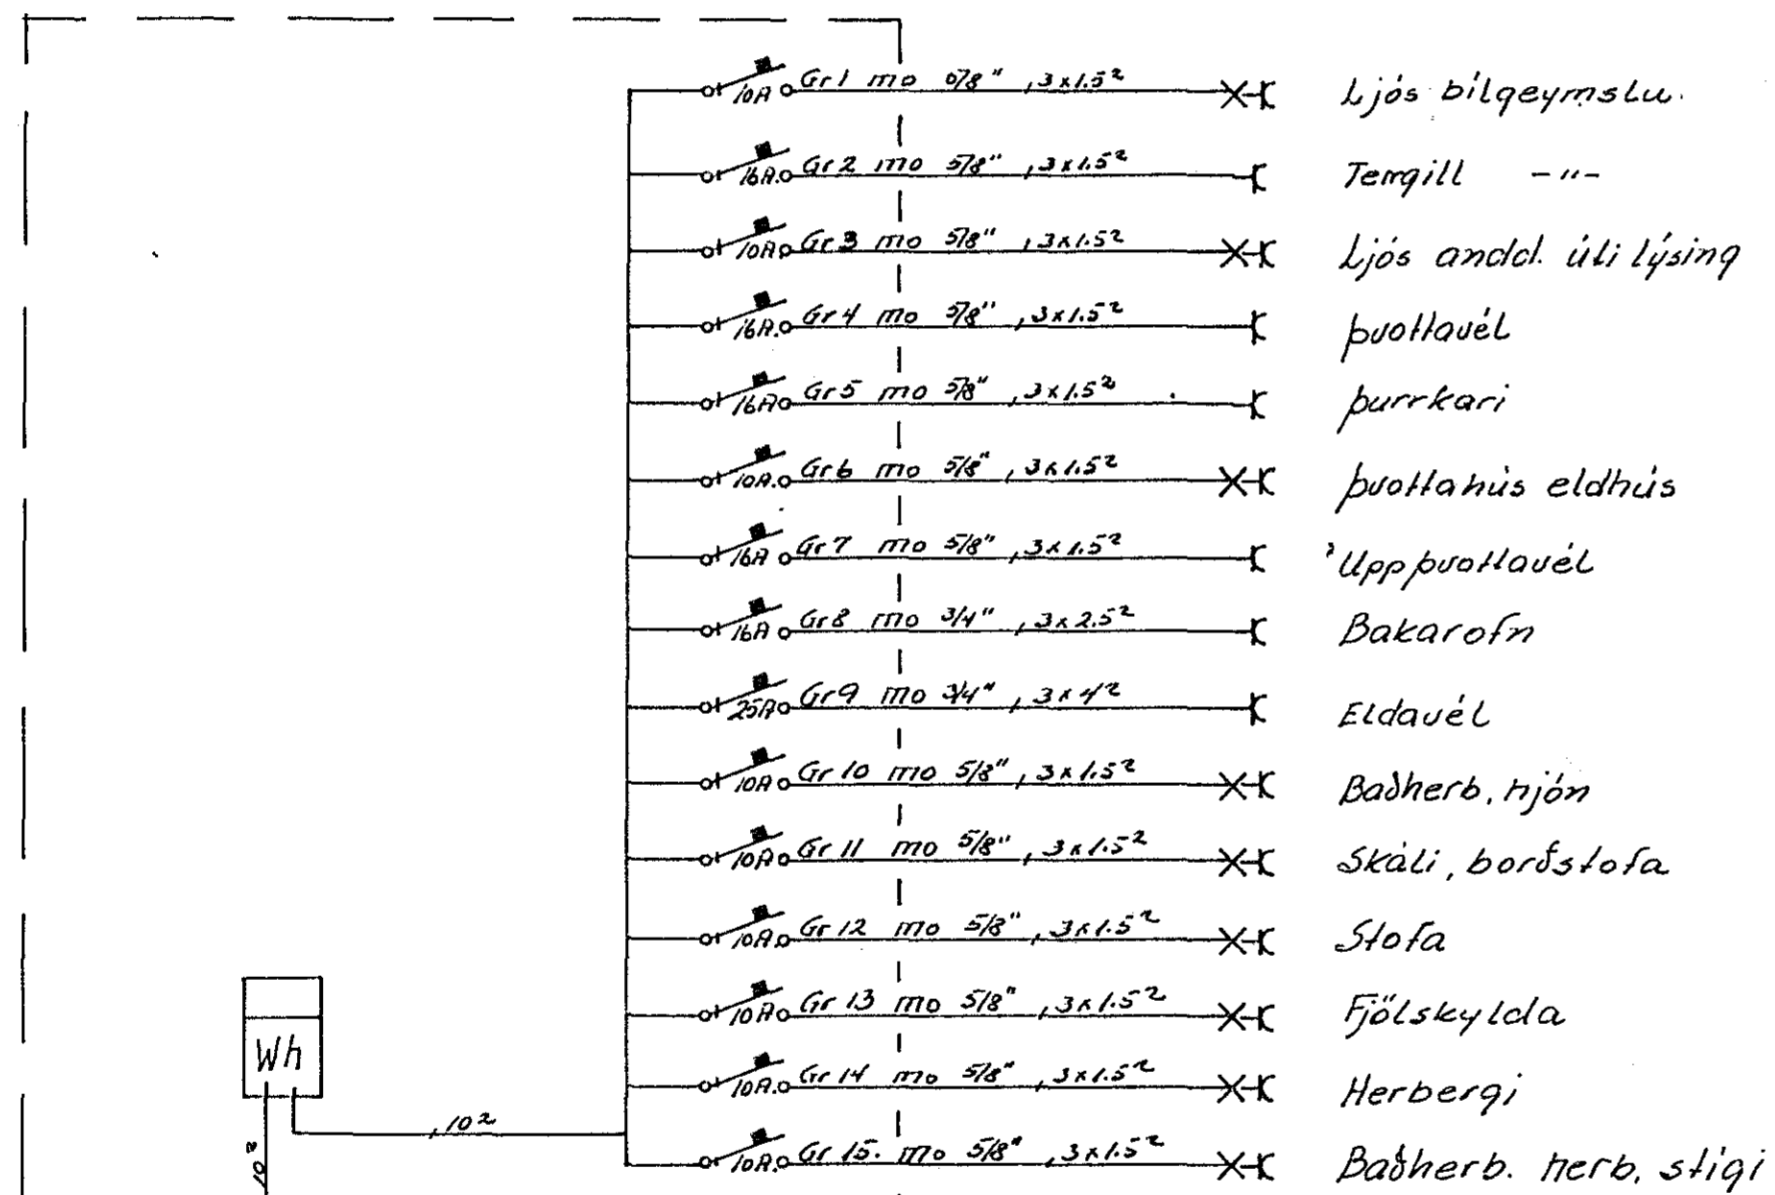 10A Gr 1 mo 5/8", 3x1.5² Ljós bílgeymslu.
16A. Gr 2 mo 5/8", 3x1.5² Tengill -"-
10A Gr 3 mo 5/8", 3x1.5² Ljós andd. úti lýsing
16A. Gr 4 mo 5/8", 3x1.5² þvottavél
16A Gr 5 mo 5/8", 3x1.5² þurrkari
10A. Gr 6 mo 5/8", 3x1.5² þvottahús eldhús
16A Gr 7 mo 5/8", 3x1.5² Uppþvottavél
16A Gr 8 mo 3/4", 3x2.5² Bakarofn
25A Gr 9 mo 3/4", 3x4² Eldavél
10A Gr 10 mo 5/8", 3x1.5² Baðherb, hjón
10A Gr 11 mo 5/8", 3x1.5² Skáli, borðstofa
10A. Gr 12 mo 5/8", 3x1.5² Stofa
10A Gr 13 mo 5/8", 3x1.5² Fjölskylda
Wh
10A. Gr 14 mo 5/8", 3x1.5² Herbergi
10²
10²
10A. Gr 15. mo 5/8", 3x1.5² Baðherb. herb, stigi